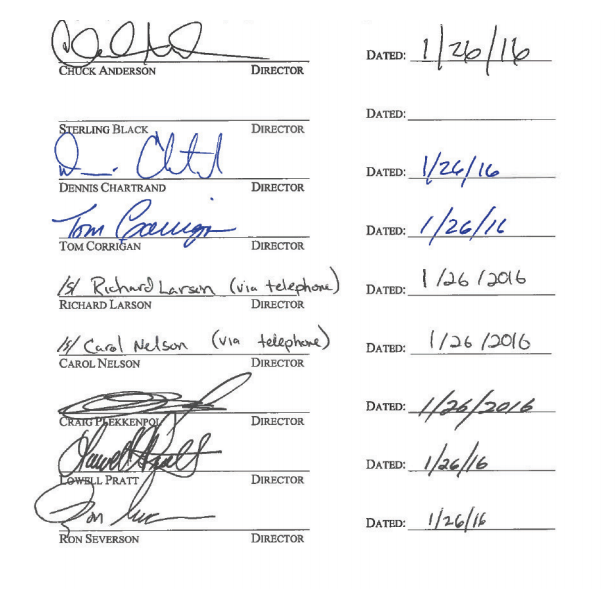 DATED: 1/26/16
CHUCK ANDERSON DIRECTOR
DATED:
STERLING BLACK DIRECTOR
DATED: 1/26/16
DENNIS CHARTRAND DIRECTOR
Tom Corrigan DATED: 1/26/16
TOM CORRIGAN DIRECTOR
/s/ Richard Larson (via telephone) DATED: 1/26/2016
RICHARD LARSON DIRECTOR
/s/ Carol Nelson (via telephone) DATED: 1/26/2016
CAROL NELSON DIRECTOR
DATED: 1/26/2016
CRAIG PLEKKENPOL DIRECTOR
Lowell Pratt DATED: 1/26/16
LOWELL PRATT DIRECTOR
DATED: 1/26/16
RON SEVERSON DIRECTOR